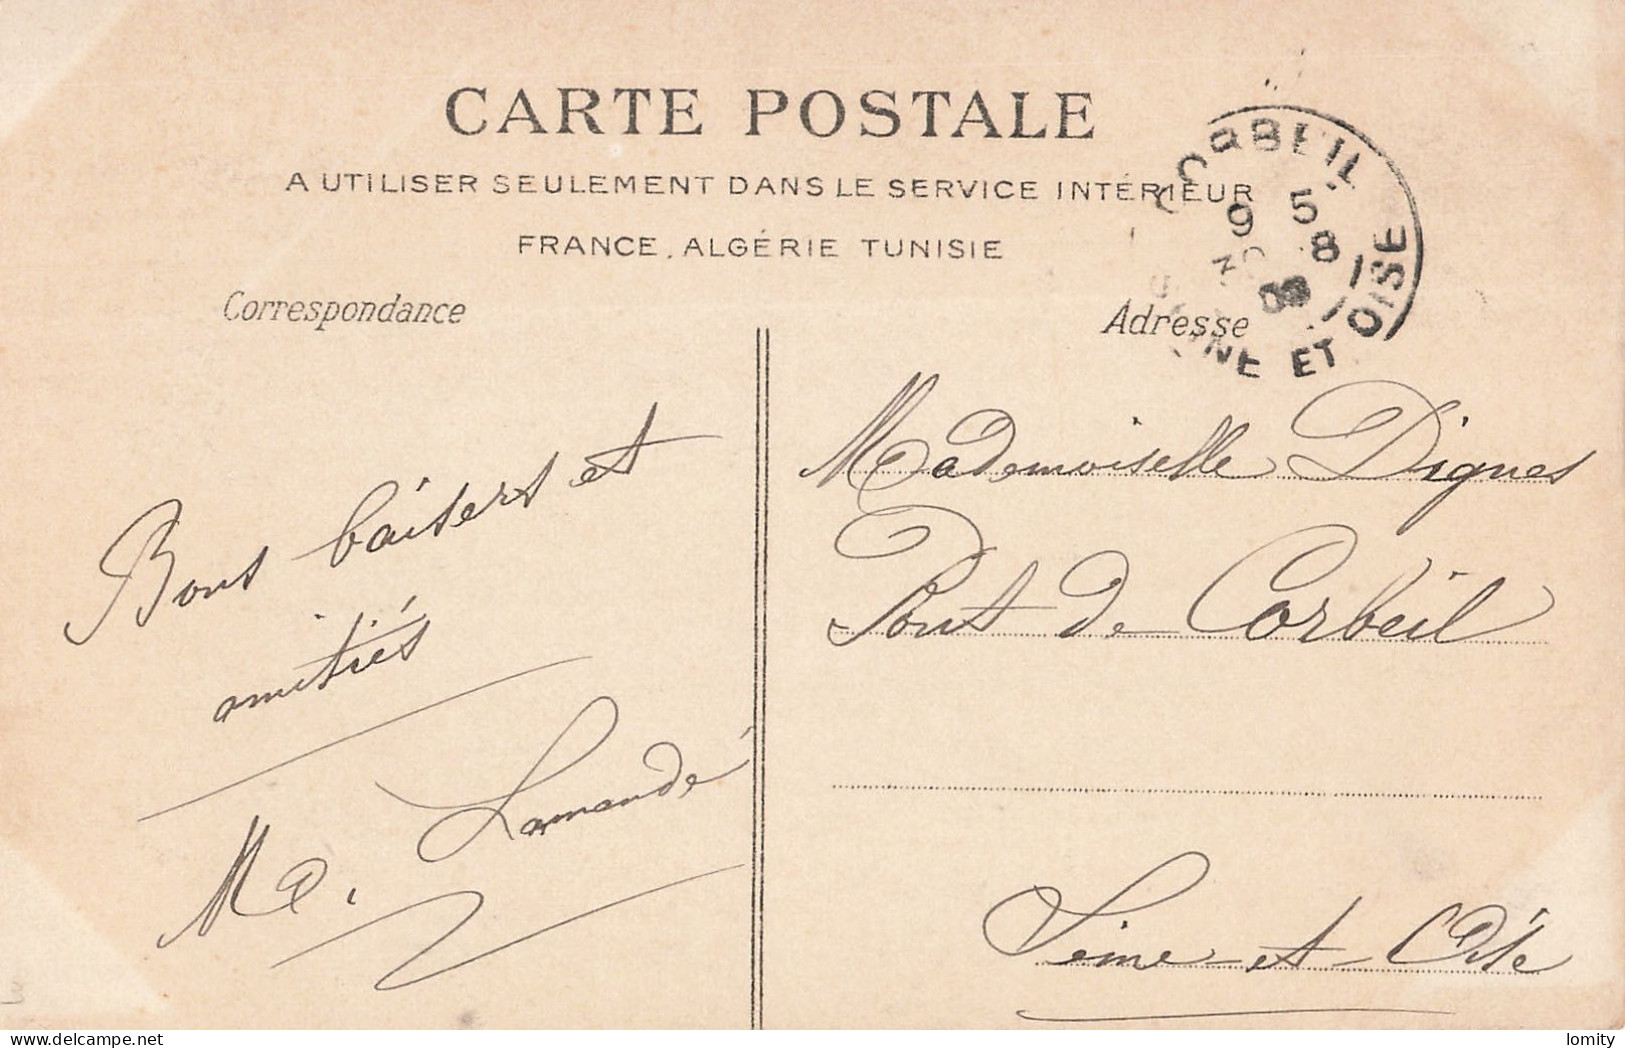 CARTE POSTALE
A UTILISER SEULEMENT DANS LE SERVICE INTÉRIEUR
FRANCE, ALGÉRIE TUNISIE
CORBEIL
9 5
30 8
09
SEINE ET OISE
Correspondance
Adresse
Bons baisers et
amitiés
Lamandé
Mademoiselle Dignes
Pont de Corbeil
Seine-et-Oise
delcampe.net
lomity